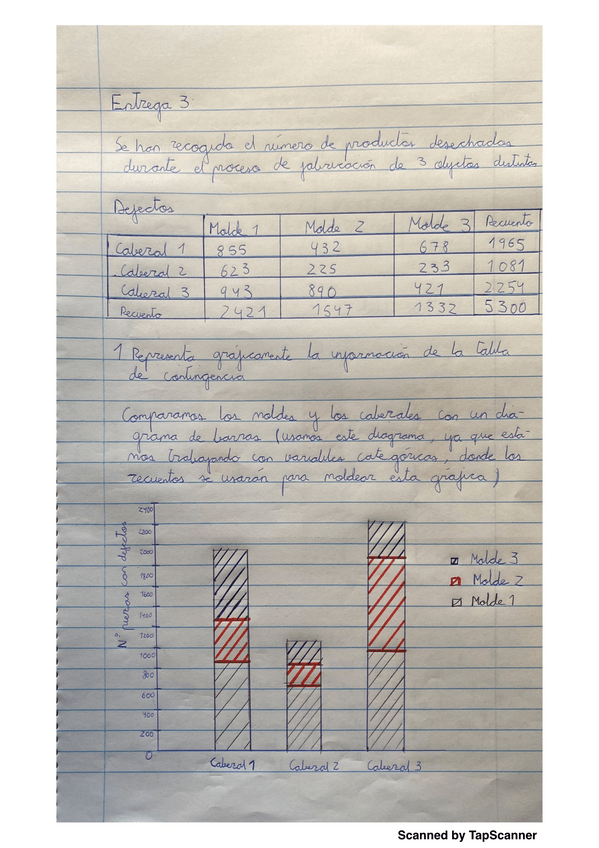 Entrega 3
Se han recogido el número de productos desechados
durante el proceso de fabricación de 3 objetos distintos
Defectos
Molde 1 Molde 2 Molde 3 Recuento
Cabezal 1 855 432 678 1965
Cabezal 2 623 225 233 1081
Cabezal 3 943 890 421 2254
Recuento 2421 1547 1332 5300
1 Representa gráficamente la información de la tabla
de contingencia
Comparamos los moldes y los cabezales con un dia-
grama de barras (usamos este diagrama, ya que esta-
mos trabajando con variables categóricas, donde los
recuentos se usarán para moldear esta gráfica)
Nº piezas con defectos
2400
2200
2000
1800
1600
1400
1200
1000
800
600
400
200
0
Molde 3
Molde 2
Molde 1
Cabezal 1 Cabezal 2 Cabezal 3
Scanned by TapScanner